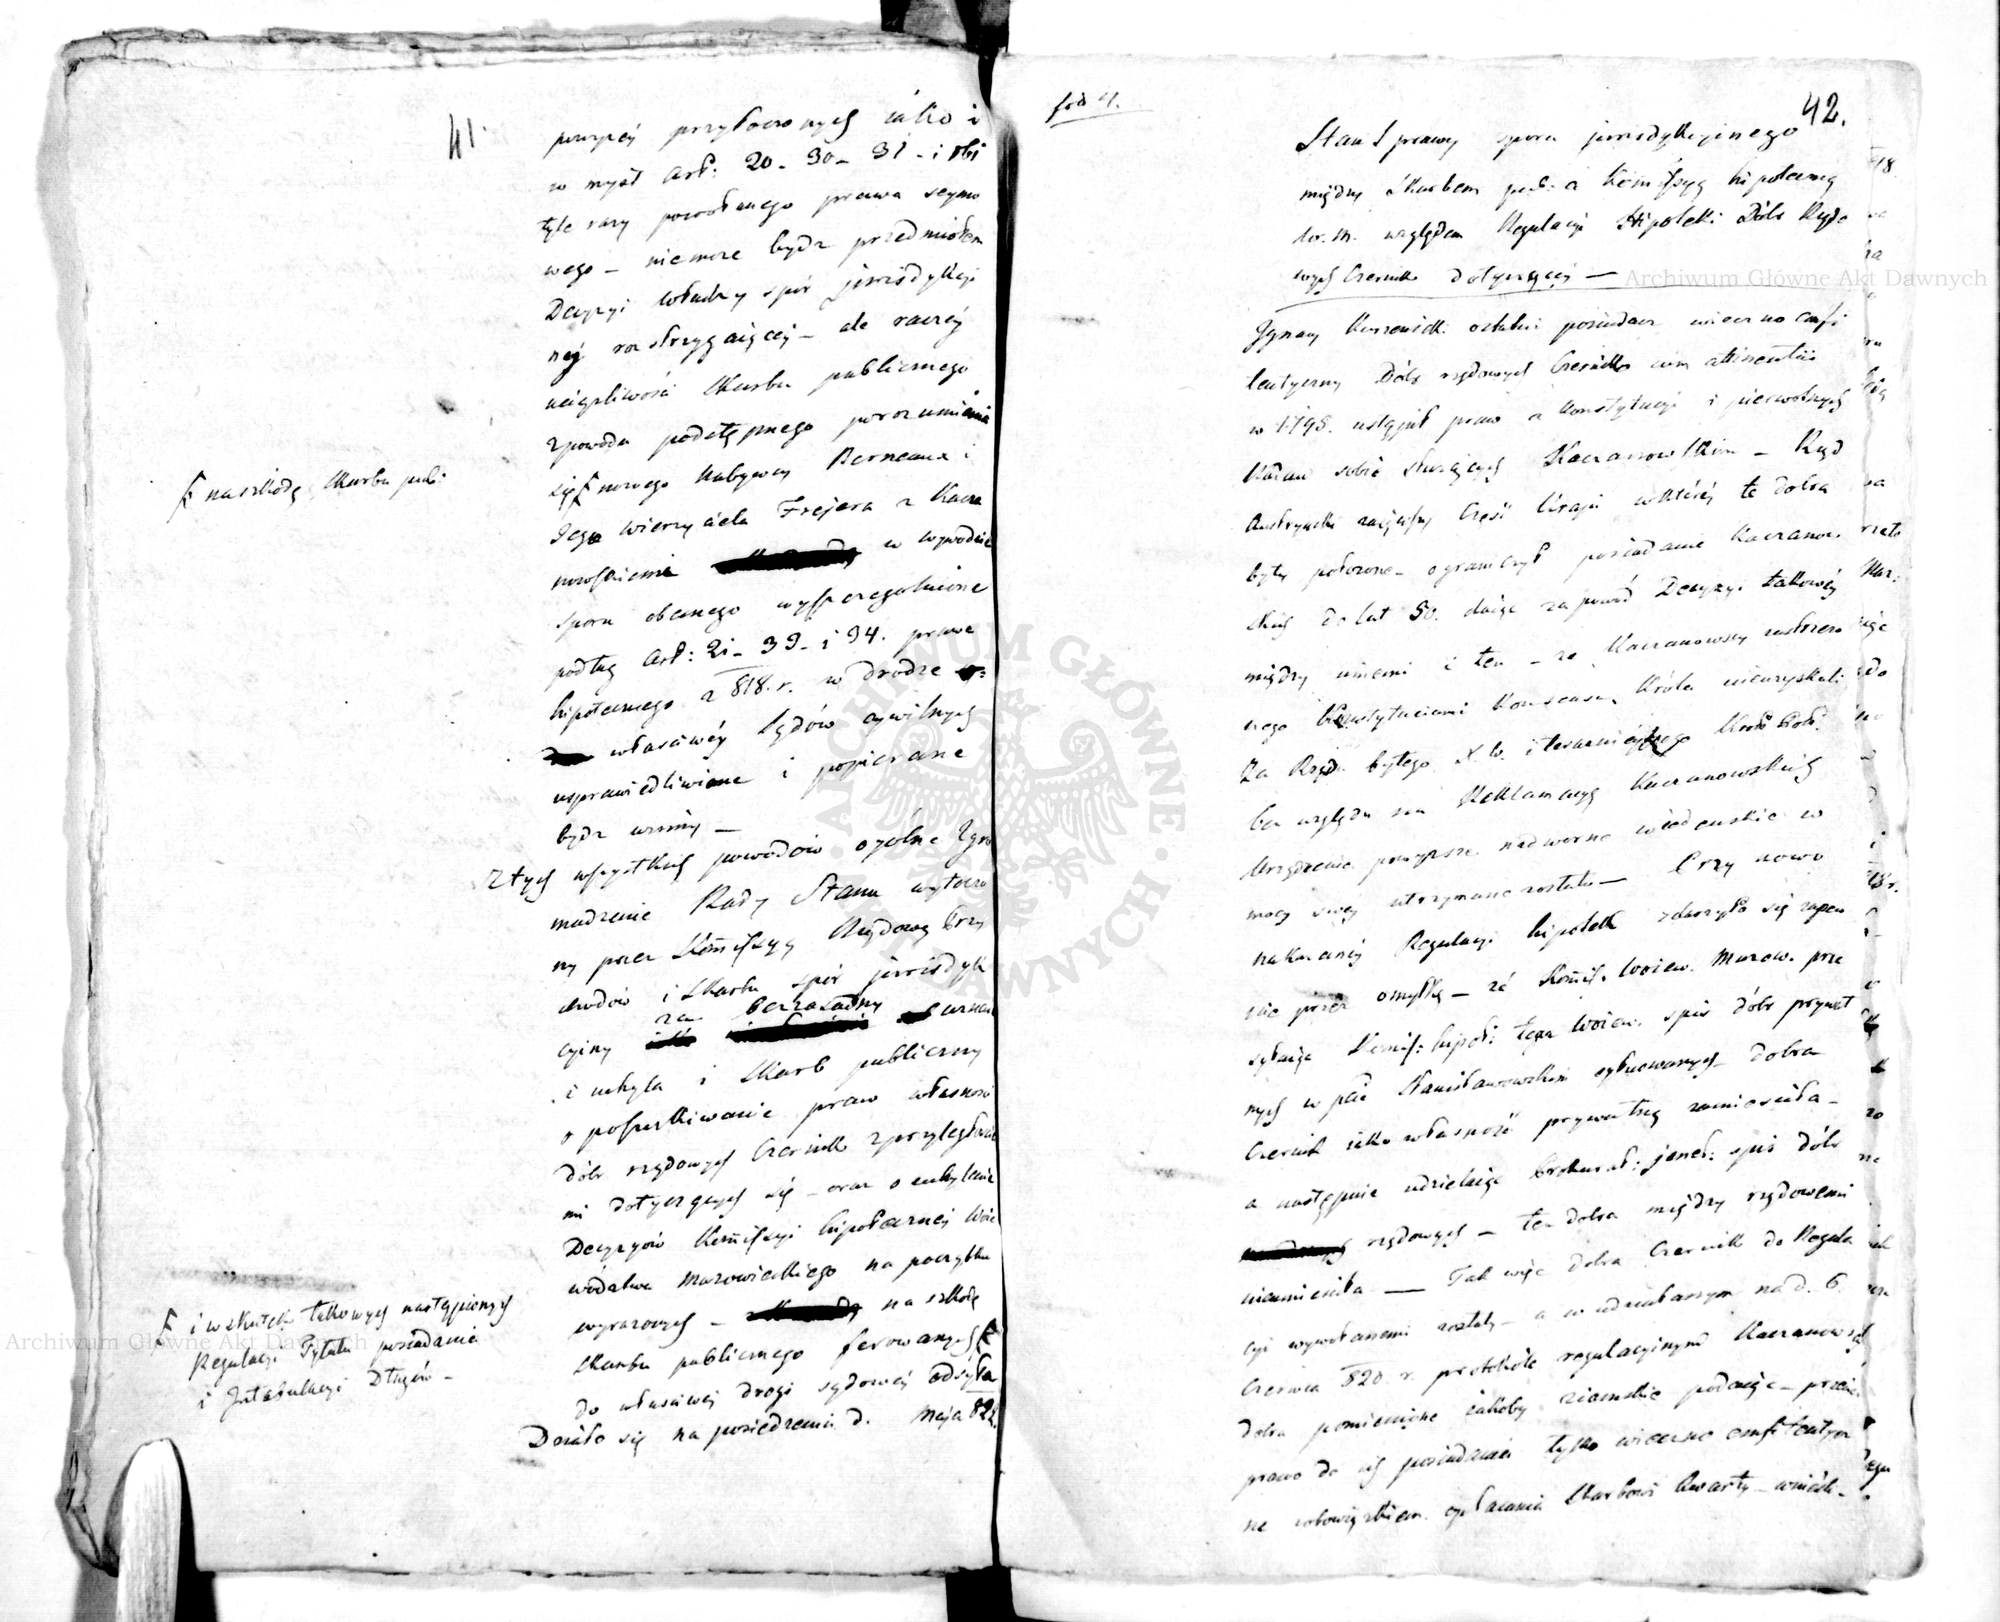 41.
powyżéy przytoczonych iako i
w myśl Art: 20 - 30 - 31 - i
tyle razy powołanego prawa seymo
wego - nie może bydź przedmiotem
Decyzyi władzy spór jurisdykcyi
ney rozstrzygaiącéy - ale raczéy
Skarbu publicznego
zpowodu podstępnego porozumienia
się nowego Nabywcy Berneaux i
Jego wierzyciela Frejera z Kacza
nowskiemi w wywodzie
sporu obecnego wyszczegolnione
podług Art: 21 - 33 - i 34. prawa
hipotecznego z 818. r. w drodze
właściwéy Sądów cywilnych
usprawiedliwione i popierane
bydź winny -
Z tych wszystkich powodów ogólne Zgro
madzenie Rady Stanu wytoczo
ny przez Kom̄issyą Rządową Przy
chodów i Skarbu spór jurisdyk
cyiny za bezzasadny uznaie
i uchyla i Skarb publiczny
o poszukiwanie praw własnosci
dóbr rządowych Czernik z przyległościa
mi dotyczących się - oraz o uchylenie
Decyzyów Kom̄issyi hipotecznéy Woie
wództwa Mazowieckiego na początku
wyrażonych - na szkodę
Skarbu publicznego ferowanych
do właściwéy drogi sądowéy odsyła
Działo się na posiedzeniu d. Maja 822.
na szkodę Skarbu pub:
i w skutek takowych nastąpionych
Regulacyi Tytułu posiadania
i Intabulacyi Długów -
fod 4.
42.
Stan Sprawy sporu jurisdykcyinego
między Skarbem pub: a Kom̄issyą hipoteczną
Wo. M. względem Regulacyi Hipoteki Dóbr Rządo
wych Czernik dotyczącéy —
Ignacy ostatni posiadacz wieczno emfi
teutyczny Dóbr rządowych Czernik cum attinentiis
w 1795. ustąpił praw z Konstytucyi i pierwotnych
sobie służących Kaczanowskim - Rząd
Austryacki zaiąwszy Część Kraju w któréy te dobra
były położone - ograniczył posiadanie Kaczanow.
skich do lat 50. daiąc za powód Decyzyi takowéy
między innemi i ten - że Kaczanowscy zastrzeżo
nego Konstytuciami Konsensu Króla nieuzyskali
Za Rządu byłego X. W. i teraznieyszego Król: Pols:
bez względu na Reklamacyą Kaczanowskich
Urządzenie powyższe nadworne wiedeńskie w
mocy swéy utrzymane zostało — Przy nowo
nakazanéy Regulacyi hipotek zdarzyło się zapew
nie przez omyłkę - że Kom̄is. Woiew. Mazow. prze
syłaiąc Komis: hipot: tegoż Woiew. spis dóbr prywat
nych w pcie Stanisławowskim sytuowanych - dobra
Czernik iako własność prywatną zamieściła -
a następnie udzielaiąc Prokurat: jenel: spis dóbr
rządowych - tez dobra między rządowemi
nieumieściła — Tak więc dobra Czernik do Regula
cyi wywołanemi zostały - a w udziałanym na d. 6.
Czerwca 820. r. protokóle regulacyinym Kaczanowscy
dobra pomienione iakoby ziemskie podaiąc -
prawo do ich posiadania tylko wieczno emfiteutycz
ne z obowiązkiem opłacania Skarbowi Kwarty -